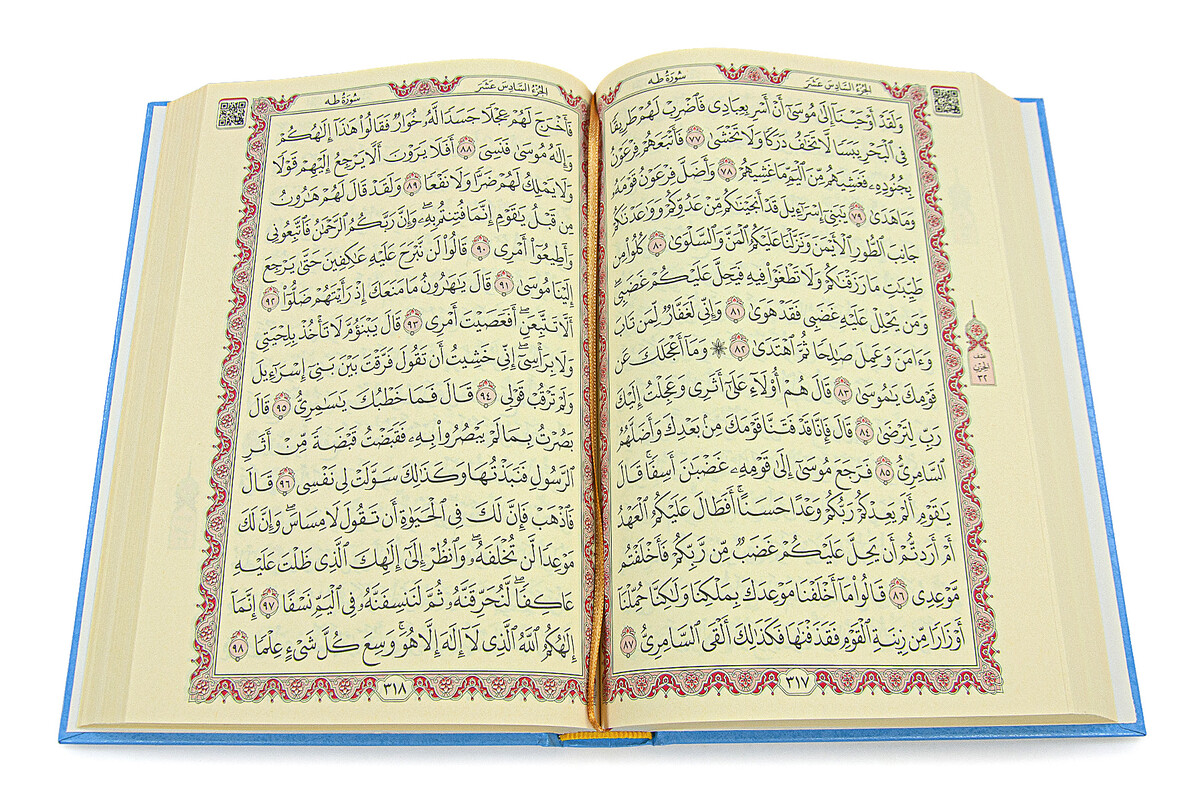 الجزء السادس عشر
سورة طه
وَلَقَدْ أَوْحَيْنَآ إِلَىٰ مُوسَىٰٓ أَنْ أَسْرِ بِعِبَادِى فَٱضْرِبْ لَهُمْ طَرِيقًا
فِى ٱلْبَحْرِ يَبَسًا لَّا تَخَٰفُ دَرَكًا وَلَا تَخْشَىٰ ٧٧ فَأَتْبَعَهُمْ فِرْعَوْنُ
بِجُنُودِهِۦ فَغَشِيَهُم مِّنَ ٱلْيَمِّ مَا غَشِيَهُمْ ٧٨ وَأَضَلَّ فِرْعَوْنُ قَوْمَهُۥ
وَمَا هَدَىٰ ٧٩ يَٰبَنِىٓ إِسْرَٰٓءِيلَ قَدْ أَنجَيْنَٰكُم مِّنْ عَدُوِّكُمْ وَوَٰعَدْنَٰكُمْ
جَانِبَ ٱلطُّورِ ٱلْأَيْمَنَ وَنَزَّلْنَا عَلَيْكُمُ ٱلْمَنَّ وَٱلسَّلْوَىٰ ٨٠ كُلُوا۟ مِن
طَيِّبَٰتِ مَا رَزَقْنَٰكُمْ وَلَا تَطْغَوْا۟ فِيهِ فَيَحِلَّ عَلَيْكُمْ غَضَبِى
وَمَن يَحْلِلْ عَلَيْهِ غَضَبِى فَقَدْ هَوَىٰ ٨١ وَإِنِّى لَغَفَّارٌ لِّمَن تَابَ
وَءَامَنَ وَعَمِلَ صَٰلِحًا ثُمَّ ٱهْتَدَىٰ ٨٢ ۞ وَمَآ أَعْجَلَكَ عَن
قَوْمِكَ يَٰمُوسَىٰ ٨٣ قَالَ هُمْ أُو۟لَآءِ عَلَىٰٓ أَثَرِى وَعَجِلْتُ إِلَيْكَ
رَبِّ لِتَرْضَىٰ ٨٤ قَالَ فَإِنَّا قَدْ فَتَنَّا قَوْمَكَ مِنۢ بَعْدِكَ وَأَضَلَّهُمُ
ٱلسَّامِرِىُّ ٨٥ فَرَجَعَ مُوسَىٰٓ إِلَىٰ قَوْمِهِۦ غَضْبَٰنَ أَسِفًا قَالَ
يَٰقَوْمِ أَلَمْ يَعِدْكُمْ رَبُّكُمْ وَعْدًا حَسَنًا أَفَطَالَ عَلَيْكُمُ ٱلْعَهْدُ
أَمْ أَرَدتُّمْ أَن يَحِلَّ عَلَيْكُمْ غَضَبٌ مِّن رَّبِّكُمْ فَأَخْلَفْتُم
مَّوْعِدِى ٨٦ قَالُوا۟ مَآ أَخْلَفْنَا مَوْعِدَكَ بِمَلْكِنَا وَلَٰكِنَّا حُمِّلْنَآ
أَوْزَارًا مِّن زِينَةِ ٱلْقَوْمِ فَقَذَفْنَٰهَا فَكَذَٰلِكَ أَلْقَى ٱلسَّامِرِىُّ ٨٧
نصف
الحزب
٣٢
٣١٧
الجزء السادس عشر
سورة طه
فَأَخْرَجَ لَهُمْ عِجْلًا جَسَدًا لَّهُۥ خُوَارٌ فَقَالُوا۟ هَٰذَآ إِلَٰهُكُمْ
وَإِلَٰهُ مُوسَىٰ فَنَسِىَ ٨٨ أَفَلَا يَرَوْنَ أَلَّا يَرْجِعُ إِلَيْهِمْ قَوْلًا
وَلَا يَمْلِكُ لَهُمْ ضَرًّا وَلَا نَفْعًا ٨٩ وَلَقَدْ قَالَ لَهُمْ هَٰرُونُ
مِن قَبْلُ يَٰقَوْمِ إِنَّمَا فُتِنتُم بِهِۦ وَإِنَّ رَبَّكُمُ ٱلرَّحْمَٰنُ فَٱتَّبِعُونِى
وَأَطِيعُوٓا۟ أَمْرِى ٩٠ قَالُوا۟ لَن نَّبْرَحَ عَلَيْهِ عَٰكِفِينَ حَتَّىٰ يَرْجِعَ
إِلَيْنَا مُوسَىٰ ٩١ قَالَ يَٰهَٰرُونُ مَا مَنَعَكَ إِذْ رَأَيْتَهُمْ ضَلُّوٓا۟ ٩٢
أَلَّا تَتَّبِعَنِ أَفَعَصَيْتَ أَمْرِى ٩٣ قَالَ يَبْنَؤُمَّ لَا تَأْخُذْ بِلِحْيَتِى
وَلَا بِرَأْسِىٓ إِنِّى خَشِيتُ أَن تَقُولَ فَرَّقْتَ بَيْنَ بَنِىٓ إِسْرَٰٓءِيلَ
وَلَمْ تَرْقُبْ قَوْلِى ٩٤ قَالَ فَمَا خَطْبُكَ يَٰسَٰمِرِىُّ ٩٥ قَالَ
بَصُرْتُ بِمَا لَمْ يَبْصُرُوا۟ بِهِۦ فَقَبَضْتُ قَبْضَةً مِّنْ أَثَرِ
ٱلرَّسُولِ فَنَبَذْتُهَا وَكَذَٰلِكَ سَوَّلَتْ لِى نَفْسِى ٩٦ قَالَ
فَٱذْهَبْ فَإِنَّ لَكَ فِى ٱلْحَيَوٰةِ أَن تَقُولَ لَا مِسَاسَ وَإِنَّ لَكَ
مَوْعِدًا لَّن تُخْلَفَهُۥ وَٱنظُرْ إِلَىٰٓ إِلَٰهِكَ ٱلَّذِى ظَلْتَ عَلَيْهِ
عَاكِفًا لَّنُحَرِّقَنَّهُۥ ثُمَّ لَنَنسِفَنَّهُۥ فِى ٱلْيَمِّ نَسْفًا ٩٧ إِنَّمَآ
إِلَٰهُكُمُ ٱللَّهُ ٱلَّذِى لَآ إِلَٰهَ إِلَّا هُوَ وَسِعَ كُلَّ شَىْءٍ عِلْمًا ٩٨
٣١٨